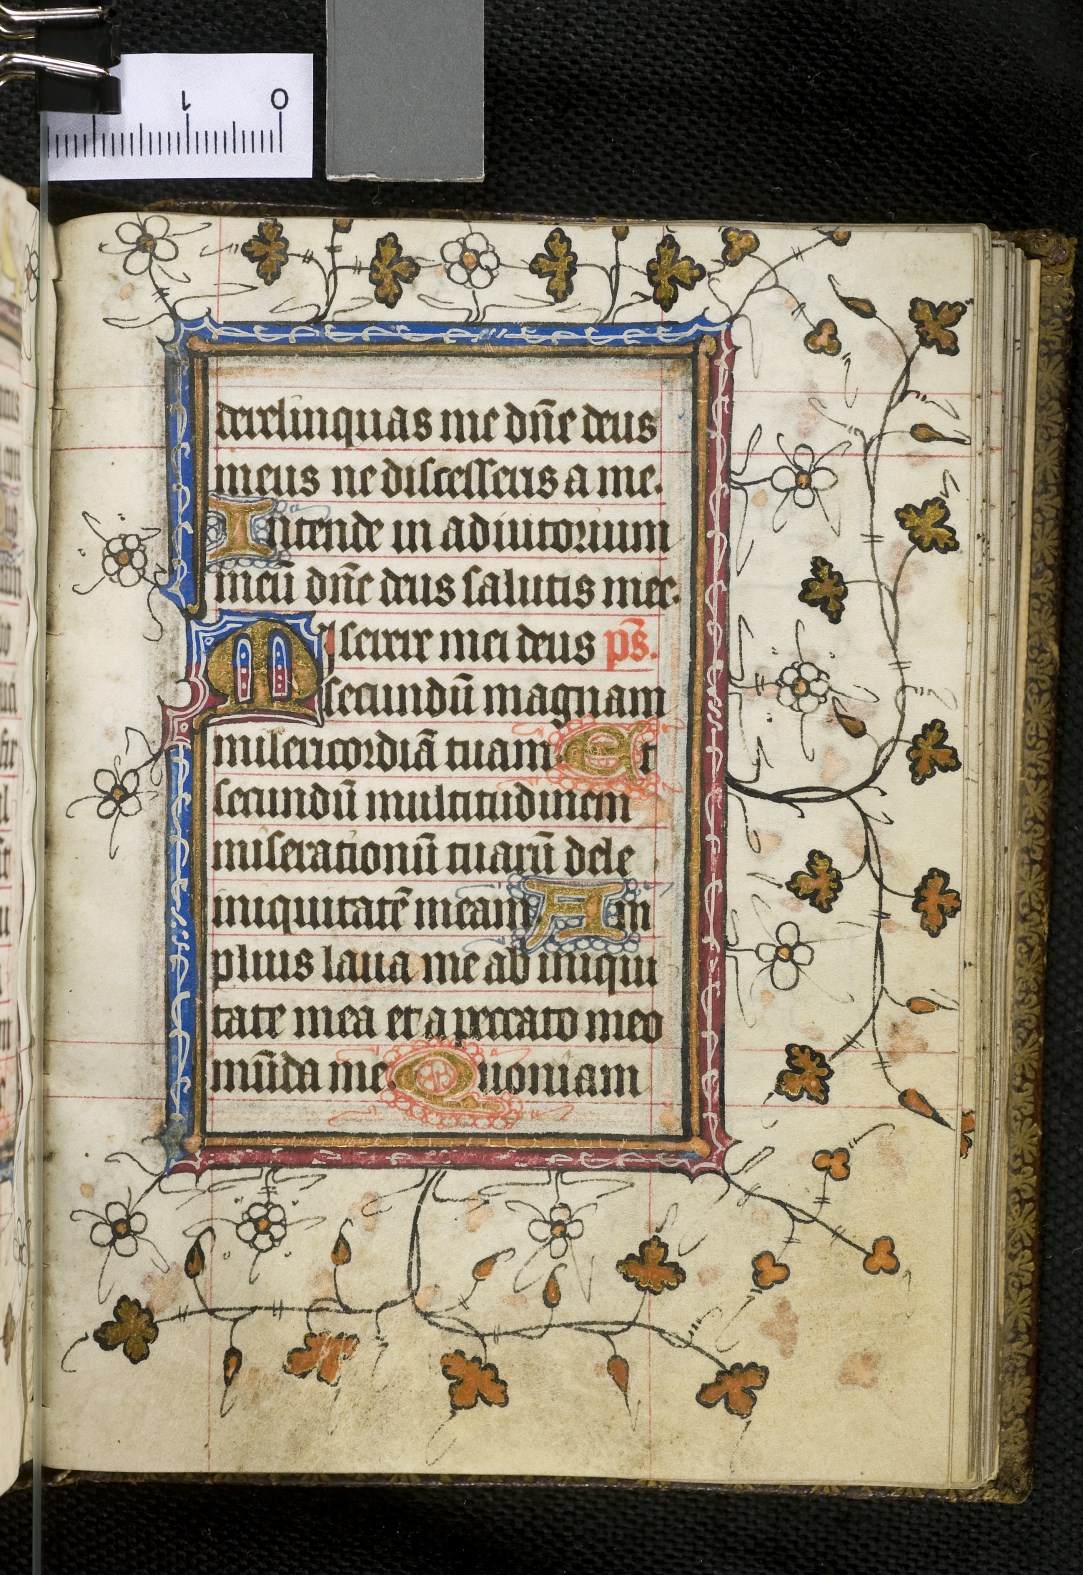 0 1
derelinquas me dn̄e deus
meus ne discesseris a me.
Intende in adiutorium
meū dn̄e deus salutis mee.
Miserere mei deus ps̄.
secundū magnam
misericordiā tuam Et
secundū multitudinem
miserationū tuarū dele
iniquitatē meam Am
plius laua me ab iniqui
tate mea et a peccato meo
mūda me Quoniam